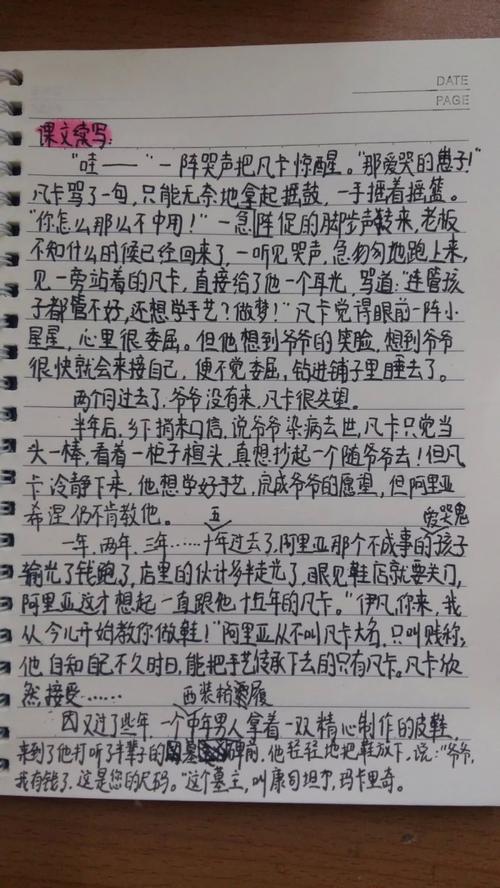 DATE
PAGE
课文续写:
"哇——"一阵哭声把凡卡惊醒。"那爱哭的崽子!"
凡卡骂了一句,只能无奈地拿起摇鼓,一手摇着摇篮。
"你怎么那么不中用!"一急阵促的脚步声转来,老板
不知什么时候已经回来了,一听见哭声,急匆匆地跑上来,
见一旁站着的凡卡,直接给了他一个耳光,骂道:"连管孩
子都管不好,还想学手艺?做梦!"凡卡觉得眼前一阵小
星星,心里很委屈。但他想到爷爷的笑脸,想到爷爷
很快就会来接自己,便不觉委屈,钻进铺子里睡去了。
两个月过去了,爷爷没有来,凡卡很失望。
半年后,乡下捎来口信,说爷爷染病去世,凡卡只觉当
头一棒,看着一柜子楦头,真想抄起一个随爷爷去!但凡
卡冷静下来,他想学好手艺,完成爷爷的愿望,但阿里亚
希涅仍不肯教他。
五
爱哭鬼
一年,两年,三年……十年过去了,阿里亚那个不成事的孩子
输光了钱跑了,店里的伙计多半走光了,眼见鞋店就要关门,
阿里亚这才想起一直跟他十五年的凡卡。"伊凡,你来,我
从今儿开始教你做鞋!"阿里亚从不叫凡卡大名,只叫贱称,
他自知自己不久时日,能把手艺传承下去的只有凡卡。凡卡欣
然接受……
西装格履
又过了些年,一个中年男人拿着一双精心制作的皮鞋,
来到了他打听了半辈子的墓碑前,他轻轻地把鞋放下,说:"爷爷,
我有钱了,这是您的尺码。"这个墓主,叫康司坦丁,玛卡里奇。